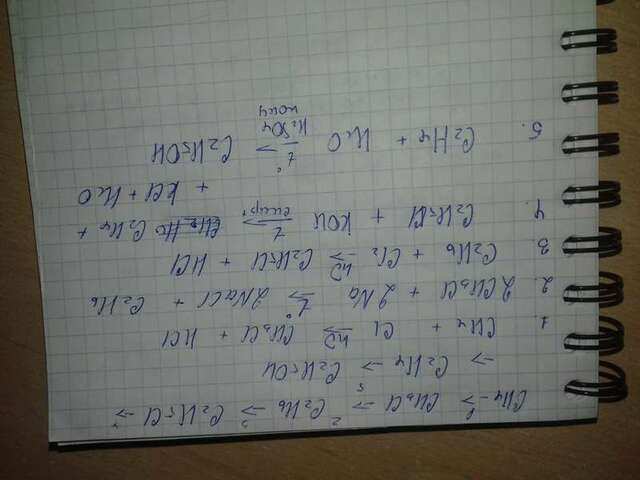 CH₄ →¹ CH₃Cl →² C₂H₆ →³ C₂H₅Cl →⁴
→ C₂H₄ →⁵ C₂H₅OH
1. CH₄ + Cl →hν CH₃Cl + HCl
2. 2CH₃Cl + 2Na →t° 2NaCl + C₂H₆
3. C₂H₆ + Cl₂ →hν C₂H₅Cl + HCl
4. C₂H₅Cl + KOH →t спирт C₂H₄ +
+ KCl + H₂O
5. C₂H₄ + H₂O →t° H₂SO₄ C₂H₅OH